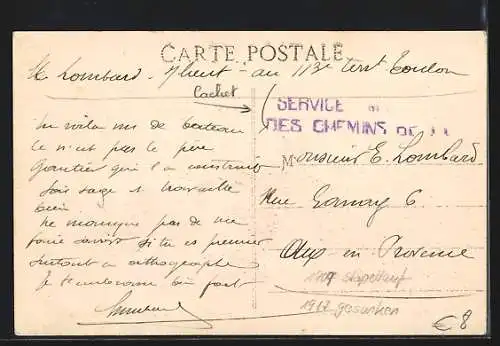 CARTE POSTALE
E. Lombard - au 113e Terr Toulon
Cachet
SERVICE
DES CHEMINS DE
En voilà un de bateau
Ce n'est pas le père
Gautier qui l'a construit
Sois sage & travaille
bien
Ne manque pas de me
faire savoir si tu es premier
surtout en orthographe
Je t'embrasse bien fort
Monsieur E. Lombard
Rue 6
Aix en Provence
1907 Stapellauf
1917 gesunken
€ 8